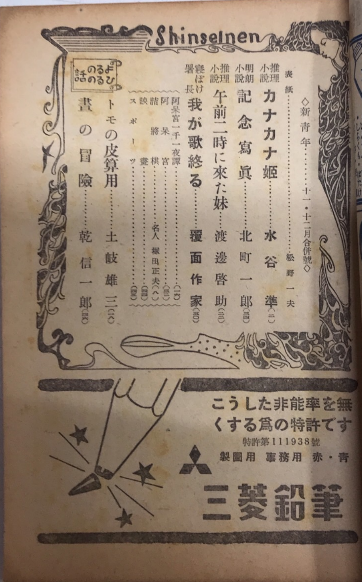 Shinseinen
◇新青年……十一・十二月合併號◇
表紙……松野一夫
推理小説 カナカナ姫……水谷準
明朗小説 記念寫眞……北町一郎
推理小説 午前二時に來た妹……渡邊啓助
寝ぼけ署長 我が歌終る……覆面作家
阿呆宮一千一夜譚
阿呆宮
詰將棋……名人
漫畫
スポーツ
よるのはなし ひるの話
トモの皮算用……土岐雄三
晝の冒險……乾信一郎
こうした非能率を無
くする爲の特許です
特許第111938號
製圖用 事務用 赤・青
三菱鉛筆